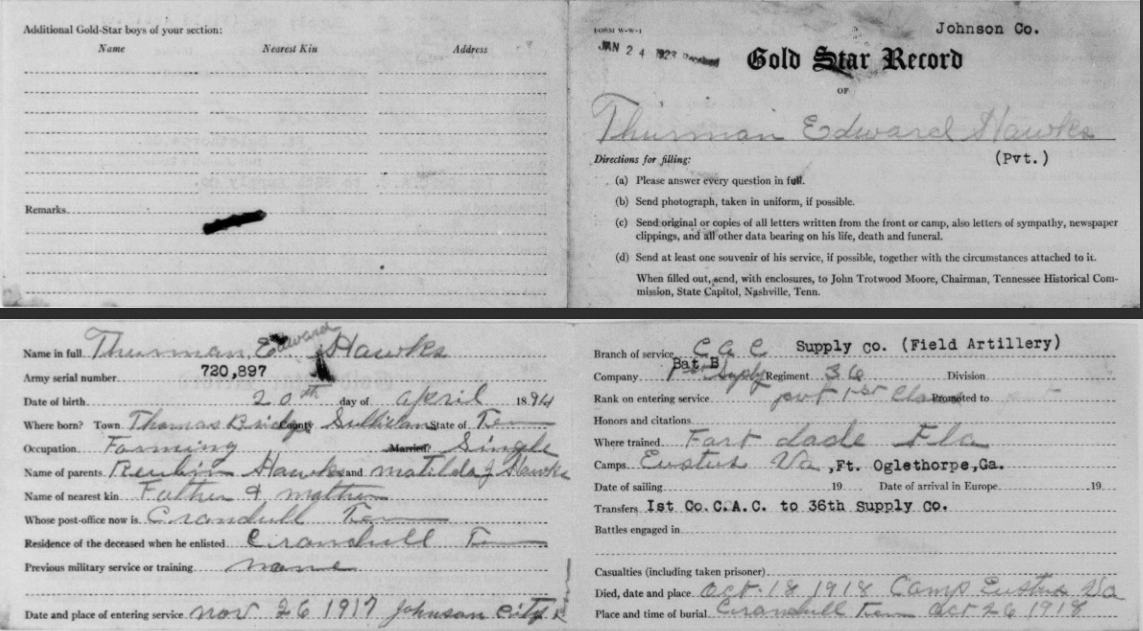 Additional Gold-Star boys of your section:
Name Nearest Kin Address
Remarks
FORM W-W-1
Johnson Co.
JAN 24 1923 Received
Gold Star Record
OF
Thurman Edward Hawks
(Pvt.)
Directions for filling:
(a) Please answer every question in full.
(b) Send photograph, taken in uniform, if possible.
(c) Send original or copies of all letters written from the front or camp, also letters of sympathy, newspaper
clippings, and all other data bearing on his life, death and funeral.
(d) Send at least one souvenir of his service, if possible, together with the circumstances attached to it.
When filled out, send, with enclosures, to John Trotwood Moore, Chairman, Tennessee Historical Com-
mission, State Capitol, Nashville, Tenn.
Name in full Thurman Edward Hawks
Army serial number 720,897
Date of birth 20th day of April 1894
Where born? Town Thomas Bridge County Sullivan State of Ten
Occupation Farming Married? Single
Name of parents Reubin Hawks and matilda J Hawks
Name of nearest kin Father & mother
Whose post-office now is Crandull Ten
Residence of the deceased when he enlisted Crandull Ten
Previous military service or training none
Date and place of entering service nov 26 1917 Johnson City
Branch of service C a C Supply Co. (Field Artillery)
Bat B
Company Supply Regiment 36 Division
Rank on entering service pvt 1st Class Promoted to
Honors and citations
Where trained Fort dade Fla
Camps Eustus Va, Ft. Oglethorpe, Ga.
Date of sailing 19 Date of arrival in Europe 19
Transfers 1st Co. C.A.C. to 36th Supply Co.
Battles engaged in
Casualties (including taken prisoner)
Died, date and place Oct. 18 1918 Camp Eustus Va
Place and time of burial Crandull Ten Oct 26 1918